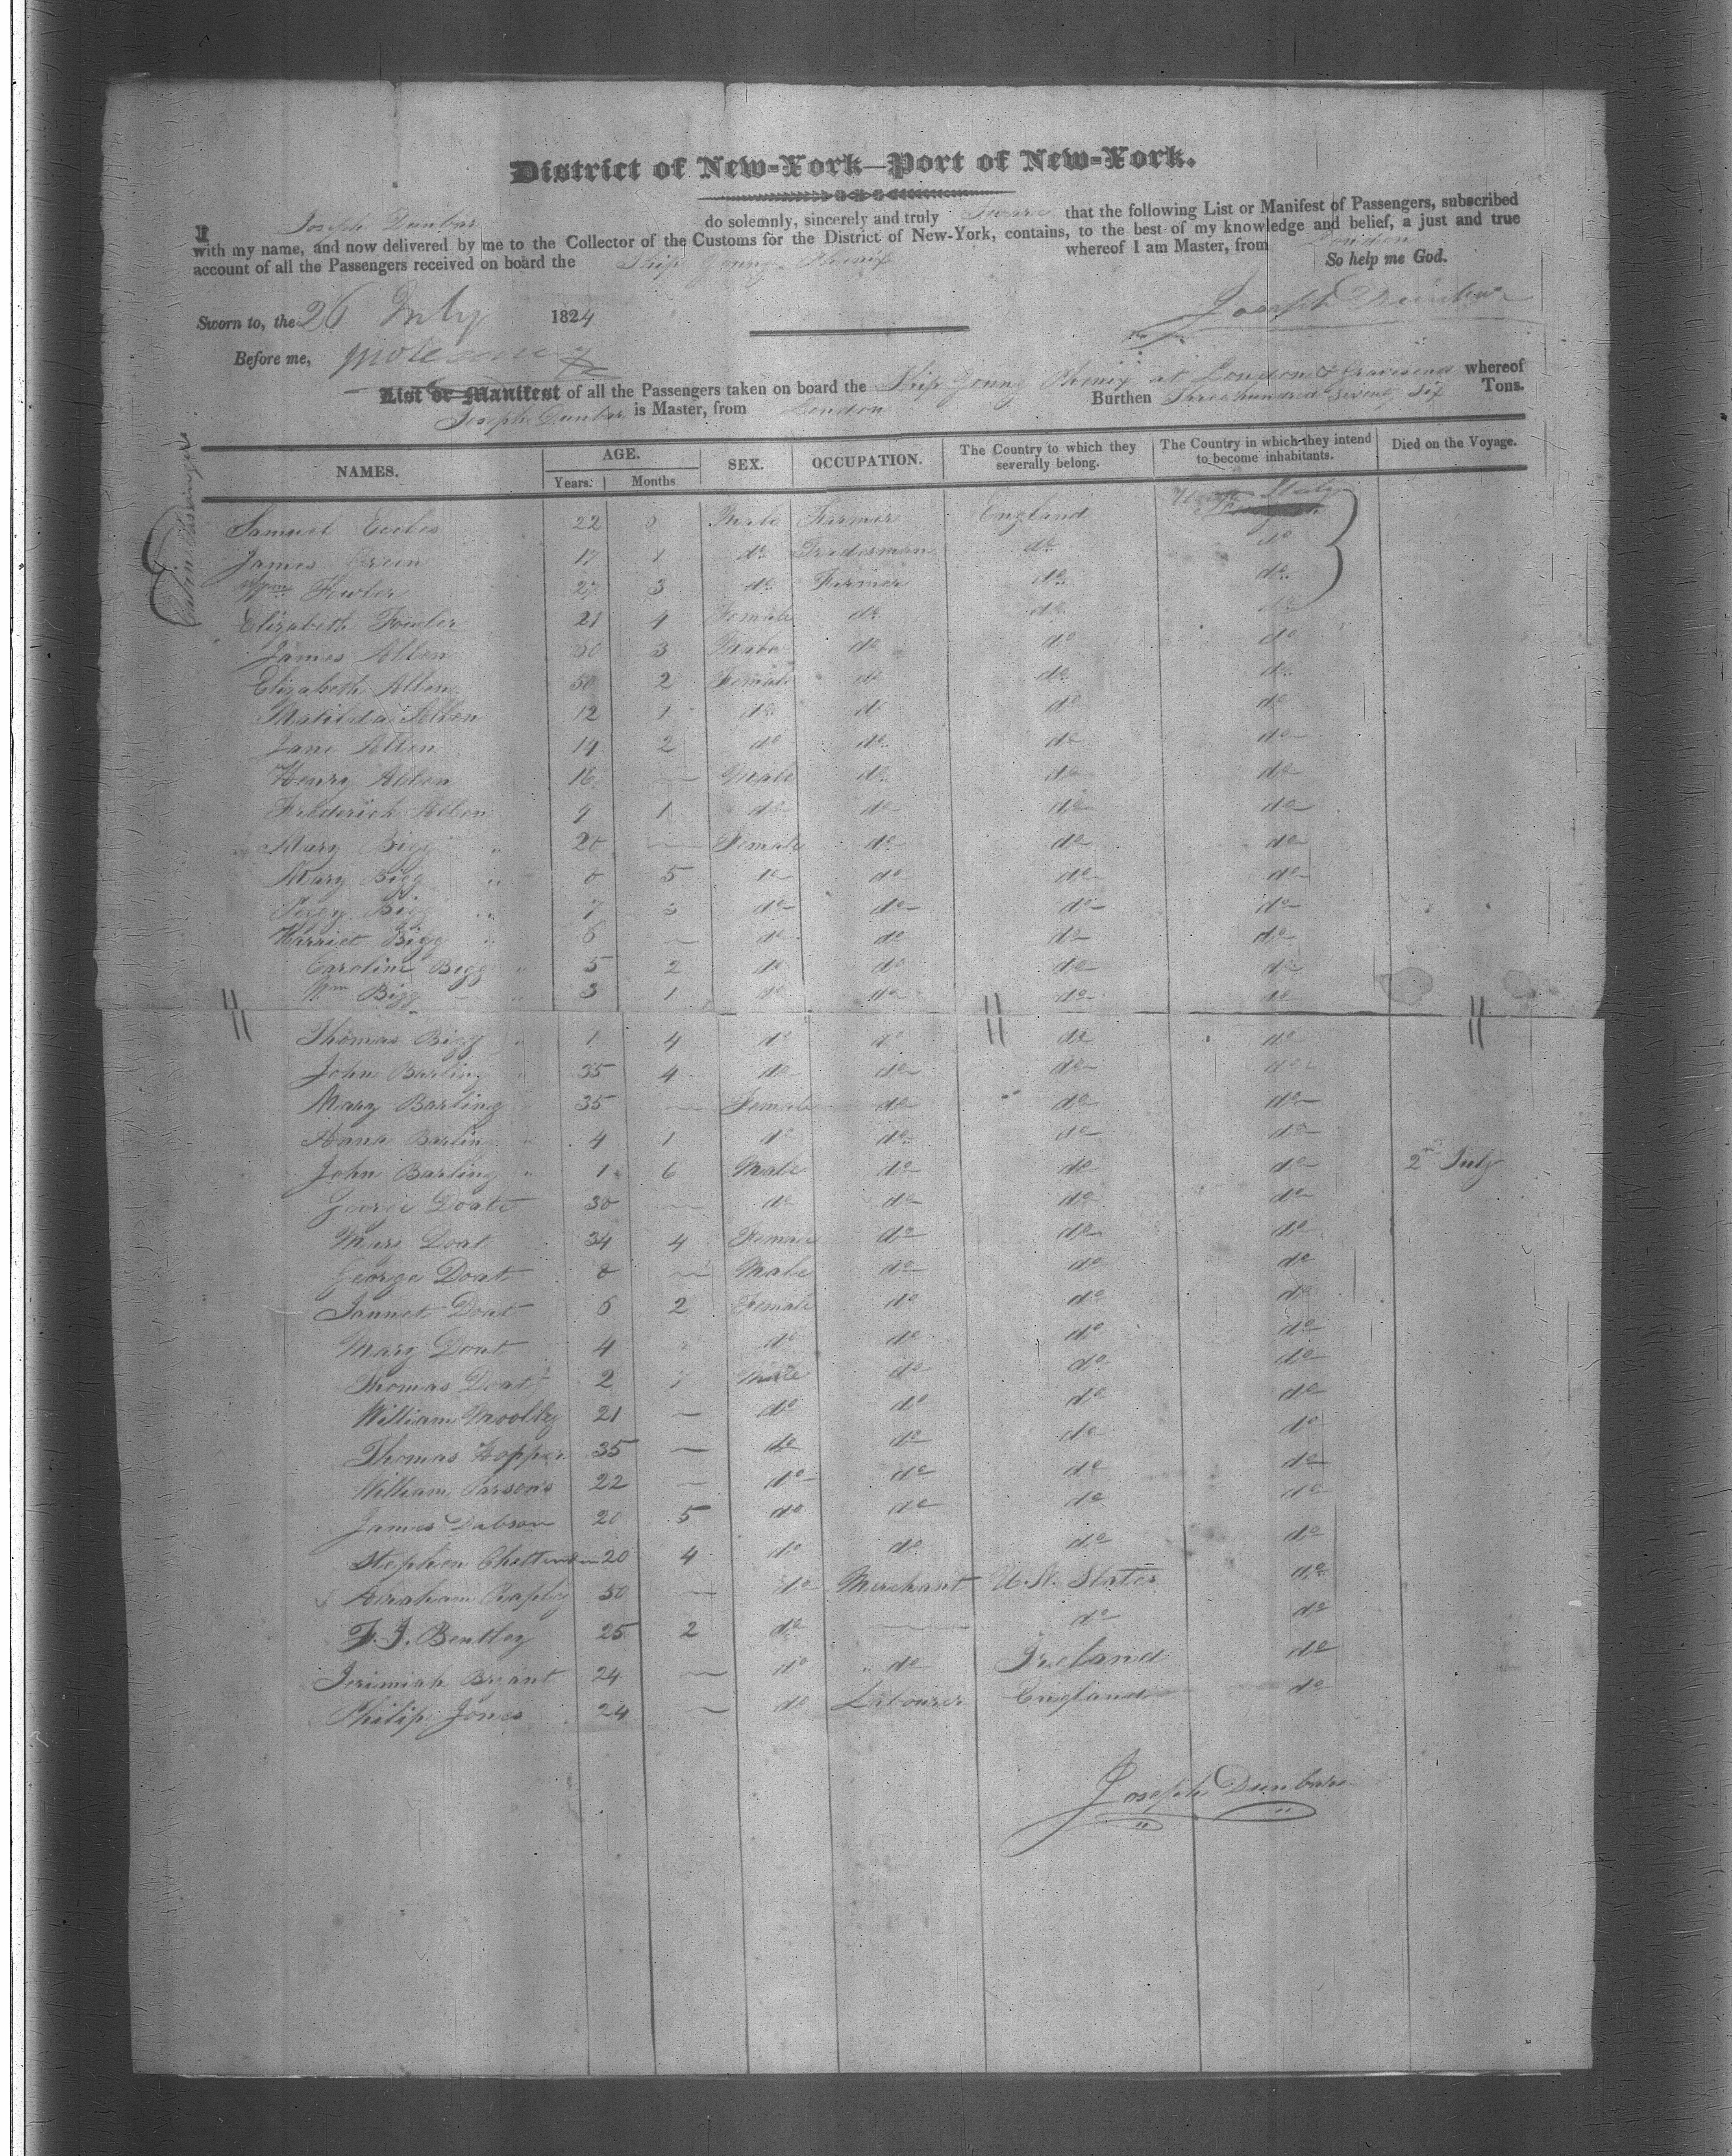 District of New-York—Port of New-York.
I Joseph Dunbar do solemnly, sincerely and truly Swear that the following List or Manifest of Passengers, subscribed
with my name, and now delivered by me to the Collector of the Customs for the District of New-York, contains, to the best of my knowledge and belief, a just and true
account of all the Passengers received on board the Ship Young Phenix whereof I am Master, from London
So help me God.
Sworn to, the 26 July 1824
Joseph Dunbar
Before me,
List or Manifest of all the Passengers taken on board the Ship Young Phenix at London & Gravesend whereof
Joseph Dunbar is Master, from London Burthen Three hundred Seventy Six Tons.
Cabin Passengers
NAMES. AGE. Years. Months SEX. OCCUPATION. The Country to which they severally belong. The Country in which they intend to become inhabitants. Died on the Voyage.
Samuel Eccles 22 Male Farmer England
James Green 17 1 do Tradesman do do
Wm Fowler 27 3 do Farmer do do
Elizabeth Fowler 21 4 Female do do do
James Allen 50 3 Male do do do
Elizabeth Allen 50 2 Female do do do
Matilda Allen 12 1 do do do do
Jane Allen 14 2 do do do do
Henry Allen 16 — Male do do do
Frederick Allen 9 1 do do do do
Mary Bigg " 28 — Female do do do
Mary Bigg " 8 5 do do do do
Bigg " 7 3 do do do do
Harriet Bigg " 6 — do do do do
Caroline Bigg " 5 2 do do do do
Wm Bigg " 3 1 do do do do
Thomas Bigg " 1 4 do do do do
John Barling " 35 4 do do do do
Mary Barling " 35 — Female do do do
Hana Barling " 4 1 do do do do
John Barling " 1 6 Male do do do 2nd July
George Doate 30 — do do do do
Mary Doat 34 4 Female do do do
George Doat 8 — Male do do do
Jannet Doat 6 2 Female do do do
Mary Doat 4 do do do do
Thomas Doat 2 Male do do do
William 21 — do do do do
Thomas Hopper 35 — do do do do
William Parsons 22 — do do do do
James Dabson 20 5 do do do do
Stephen Chettenden 20 4 do do do do
Abraham Rapley 50 — do Merchant U. St. States do
F. J. Bentley 25 2 do — do do
Jerimiah Bryant 24 — do " do Ireland do
Philip Jones 24 — do Labourer England do
Joseph Dunbar